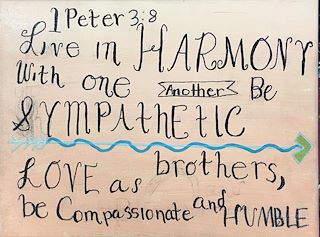 1 Peter 3:8
Live in HARMONY
With one Another Be
SYMPAthETIC
LOVE as brothers,
be Compassionate and HUMBLE